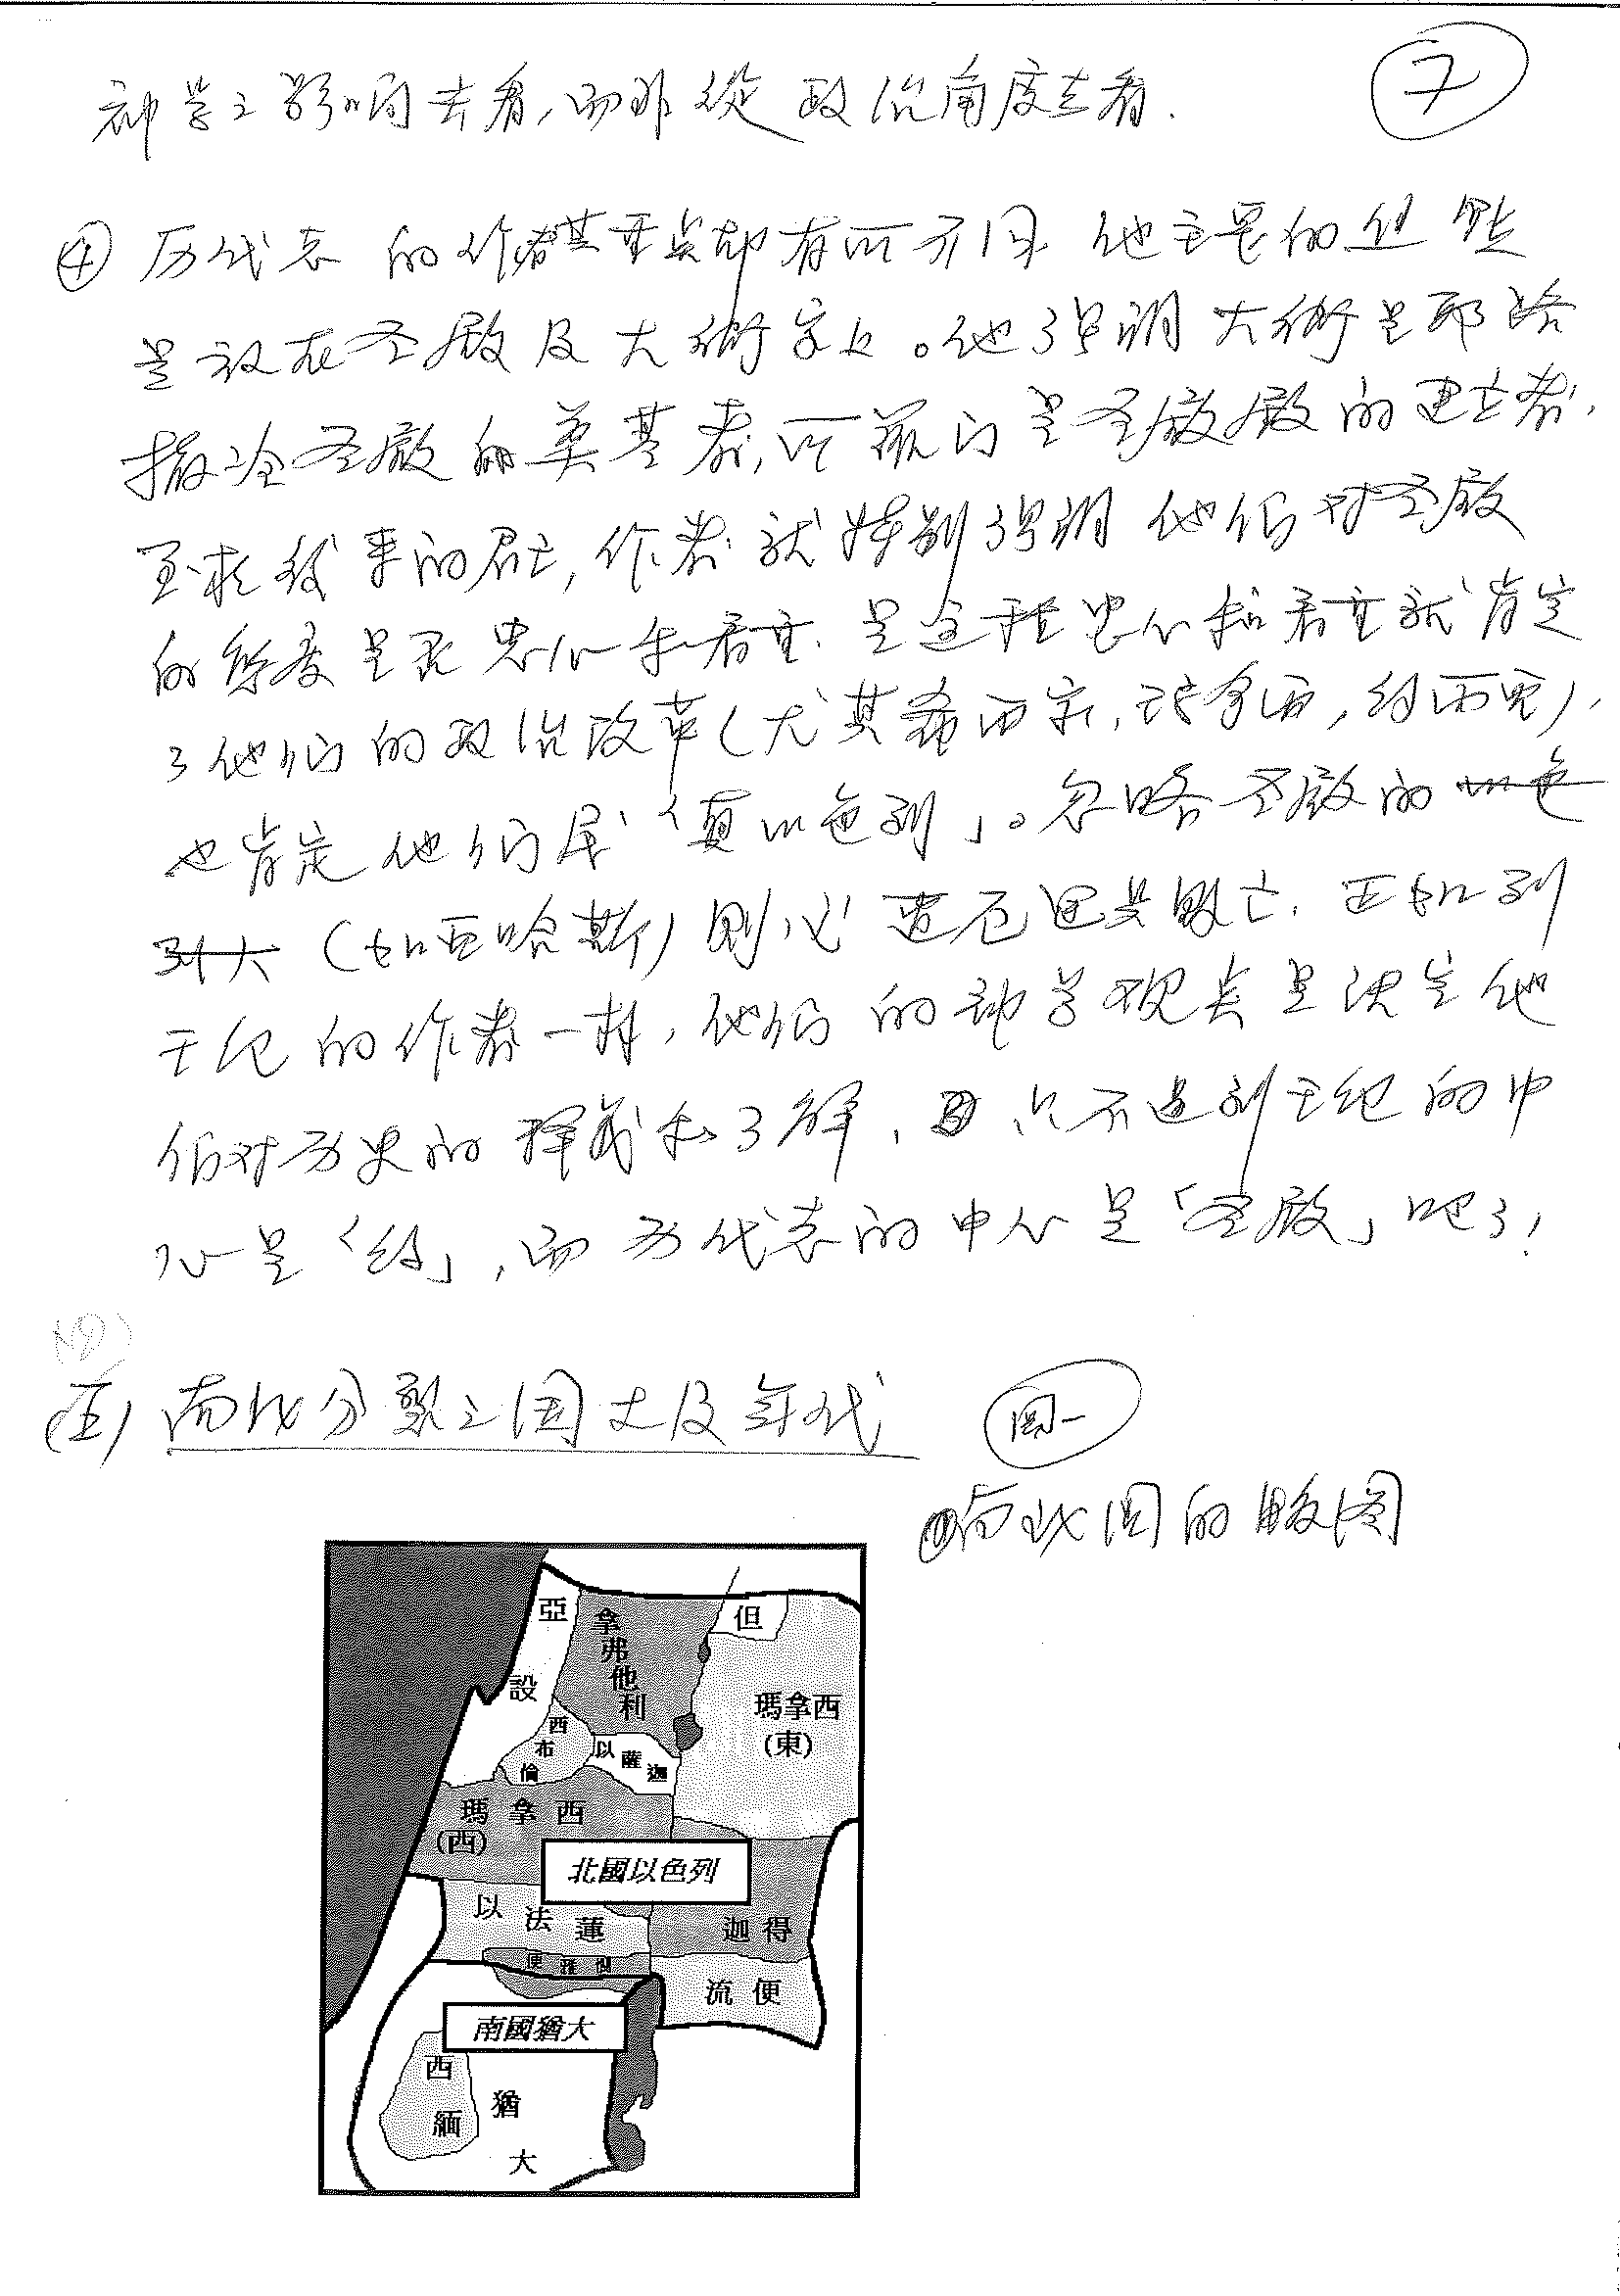 7
神学之影响去看,而非從政治角度去看.
④ 历代志的作者其重点却有所不同 他主要的焦點
是放在圣殿及大衛家上。他强調大衛是耶路
撒冷圣殿的奠基者,所羅门是圣殿殿的建立者,
至於後來的君王,作者就特别强調他们对圣殿
的態度是否忠心和看重. 是這种忠心和看重就肯定
了他们的政治改革(尤其希西家,
也肯定他们屬「真以色列」。忽略圣殿的
(如亞哈斯)則必遭厄運与敗亡. 正如列
王纪的作者一样,他们的神学观点是决定他
们对历史的擇裁和了解, 只不過列王纪的中
心是「约」,而历代志的中心是「圣殿」吧了!
(五) 南北分裂之国土及年代 图一
①南北国的版图
亞設
拿弗他利
但
瑪拿西
(東)
西布倫
以薩迦
瑪拿西
(西)
北國以色列
以法蓮
迦得
便雅憫
流便
南國猶大
西緬
猶大